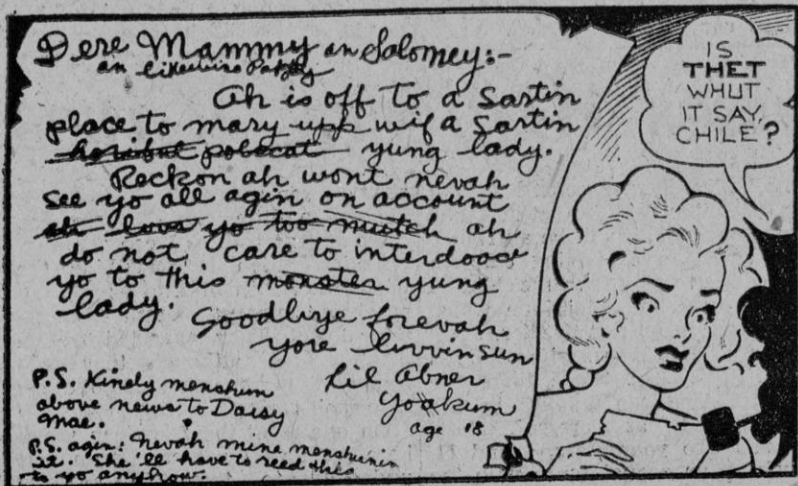 Dere Mammy an Salomey:-
an likewise Pappy
Ah is off to a sartin
place to mary upp wif a sartin
horibul polecat yung lady.
Reckon ah wont nevah
see yo all agin on account
ah love yo too mutch ah
do not care to interdooce
yo to this monster yung
lady.
Goodbye forevah
yore luvvin sun
Lil Abner
Yoakum
age 18
P.S. Kinely menshun
above news to Daisy
Mae.
P.S. agin: Nevah mine menshunin
it. She'll have to reed this
to yo anyhow.
IS
THET
WHUT
IT SAY,
CHILE?